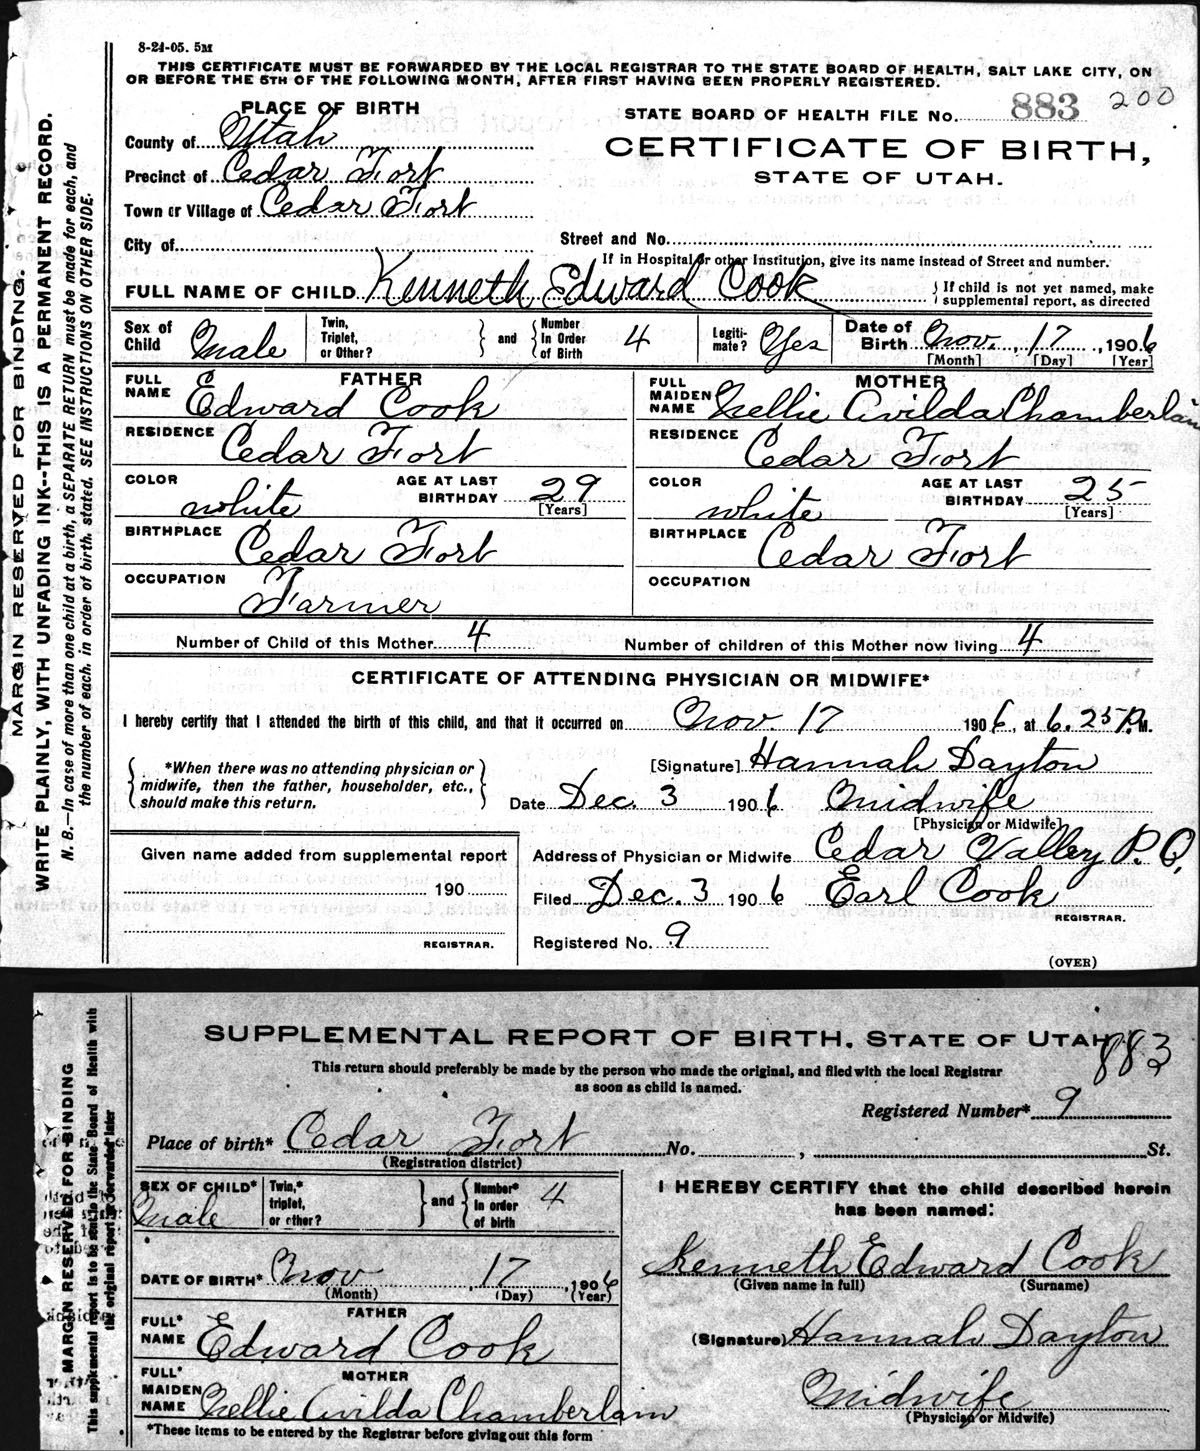 8-24-05. 5M
THIS CERTIFICATE MUST BE FORWARDED BY THE LOCAL REGISTRAR TO THE STATE BOARD OF HEALTH, SALT LAKE CITY, ON
OR BEFORE THE 5TH OF THE FOLLOWING MONTH, AFTER FIRST HAVING BEEN PROPERLY REGISTERED.
PLACE OF BIRTH
STATE BOARD OF HEALTH FILE No. 883 200
County of Utah
CERTIFICATE OF BIRTH,
STATE OF UTAH.
Precinct of Cedar Fort
Town or Village of Cedar Fort
City of
Street and No.
If in Hospital or other Institution, give its name instead of Street and number.
FULL NAME OF CHILD Kenneth Edward Cook } If child is not yet named, make
supplemental report, as directed
Sex of Child Male Twin, Triplet, or Other? } and { Number In Order of Birth 4 Legiti-mate? Yes Date of Birth Nov. , 17 , 1906
[Month] [Day] [Year]
FATHER MOTHER
FULL NAME Edward Cook FULL MAIDEN NAME Nellie Avilda Chamberlain
RESIDENCE Cedar Fort RESIDENCE Cedar Fort
COLOR white AGE AT LAST BIRTHDAY 29 [Years] COLOR white AGE AT LAST BIRTHDAY 25 [Years]
BIRTHPLACE Cedar Fort BIRTHPLACE Cedar Fort
OCCUPATION Farmer OCCUPATION
Number of Child of this Mother 4 Number of children of this Mother now living 4
CERTIFICATE OF ATTENDING PHYSICIAN OR MIDWIFE*
I hereby certify that I attended the birth of this child, and that it occurred on Nov. 17 1906, at 6.25 P. M.
{ *When there was no attending physician or
midwife, then the father, householder, etc.,
should make this return. }
[Signature] Hannah Dayton
Date Dec. 3 1906 Midwife
[Physician or Midwife]
Given name added from supplemental report
190
REGISTRAR.
Address of Physician or Midwife Cedar Valley P.O.
Filed Dec. 3 1906 Earl Cook
REGISTRAR.
Registered No. 9
(OVER)
MARGIN RESERVED FOR BINDING.
WRITE PLAINLY, WITH UNFADING INK--THIS IS A PERMANENT RECORD.
N. B.—In case of more than one child at a birth, a SEPARATE RETURN must be made for each, and
the number of each, in order of birth, stated. SEE INSTRUCTIONS ON OTHER SIDE.
SUPPLEMENTAL REPORT OF BIRTH, STATE OF UTAH
883
This return should preferably be made by the person who made the original, and filed with the local Registrar
as soon as child is named.
Registered Number* 9
Place of birth* Cedar Fort No. , St.
(Registration district)
SEX OF CHILD* Male Twin,* triplet, or other? } and { Number* in order of birth 4
I HEREBY CERTIFY that the child described herein
has been named:
DATE OF BIRTH* Nov , 17 , 1906
(Month) (Day) (Year)
Kenneth Edward Cook
(Given name in full) (Surname)
FATHER
FULL* NAME Edward Cook
(Signature) Hannah Dayton
MOTHER
FULL* MAIDEN NAME Nellie Avilda Chamberlain
Midwife
(Physician or Midwife)
*These items to be entered by the Registrar before giving out this form
MARGIN RESERVED FOR BINDING
This supplemental report is to be sent to the State Board of Health with
the original report if forwarded later